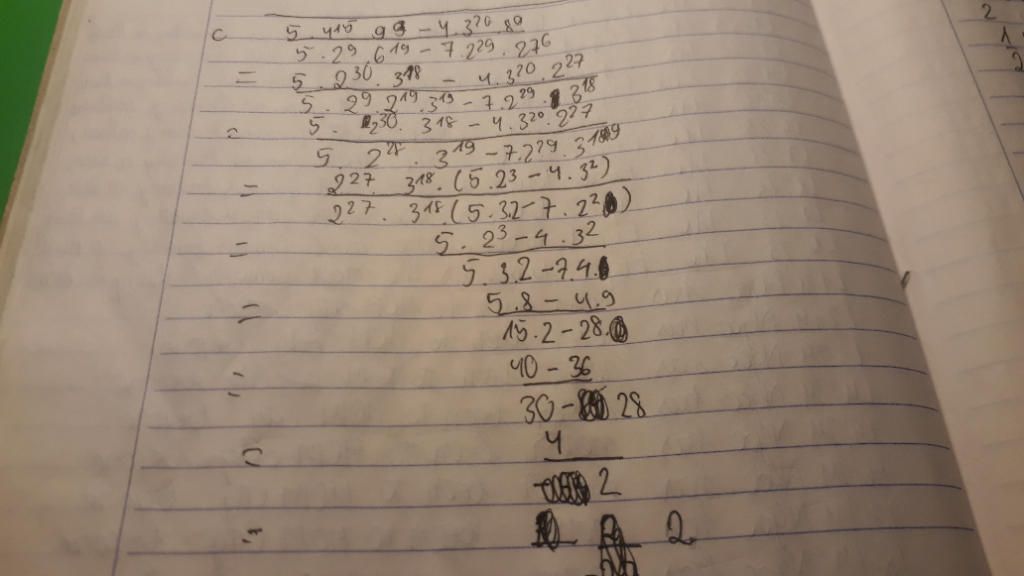 c 5.4¹⁵.9⁹ – 4.3²⁰.8⁹
5.2⁹.6¹⁹ – 7.2²⁹.27⁶
= 5.2³⁰.3¹⁸ – 4.3²⁰.2²⁷
5.2⁹.2¹⁹.3¹⁹ – 7.2²⁹.3¹⁸
= 5.2³⁰.3¹⁸ – 4.3²⁰.2²⁷
5.2²⁸.3¹⁹ – 7.2²⁹.3
= 2²⁷.3¹⁸.(5.2³ – 4.3²)
2²⁷.3¹⁸(5.3.2 – 7.2²)
= 5.2³ – 4.3²
5.3.2 – 7.4.
= 5.8 – 4.9
15.2 – 28.
= 40 – 36
30 – 28
= 4
2
= 2